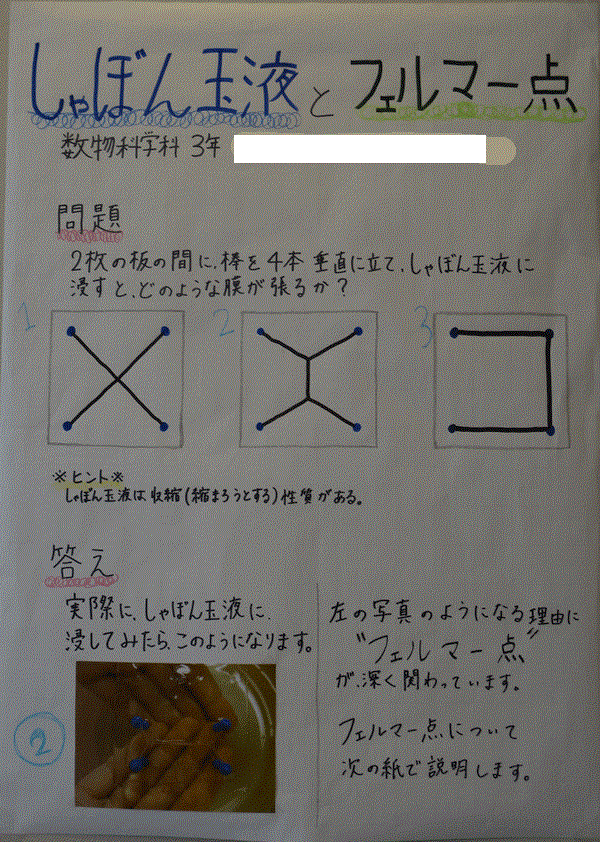 しゃぼん玉液とフェルマー点
数物科学科 3年
問題
2枚の板の間に、棒を4本 垂直に立て、しゃぼん玉液に
浸すと、どのような膜が張るか?
1 2 3
※ヒント※
しゃぼん玉液は収縮(縮まろうとする)性質がある。
答え
実際に、しゃぼん玉液に
浸してみたら、このようになります。
2
左の写真のようになる理由に
"フェルマー点"
が、深く関わっています。
フェルマー点について
次の紙で説明します。